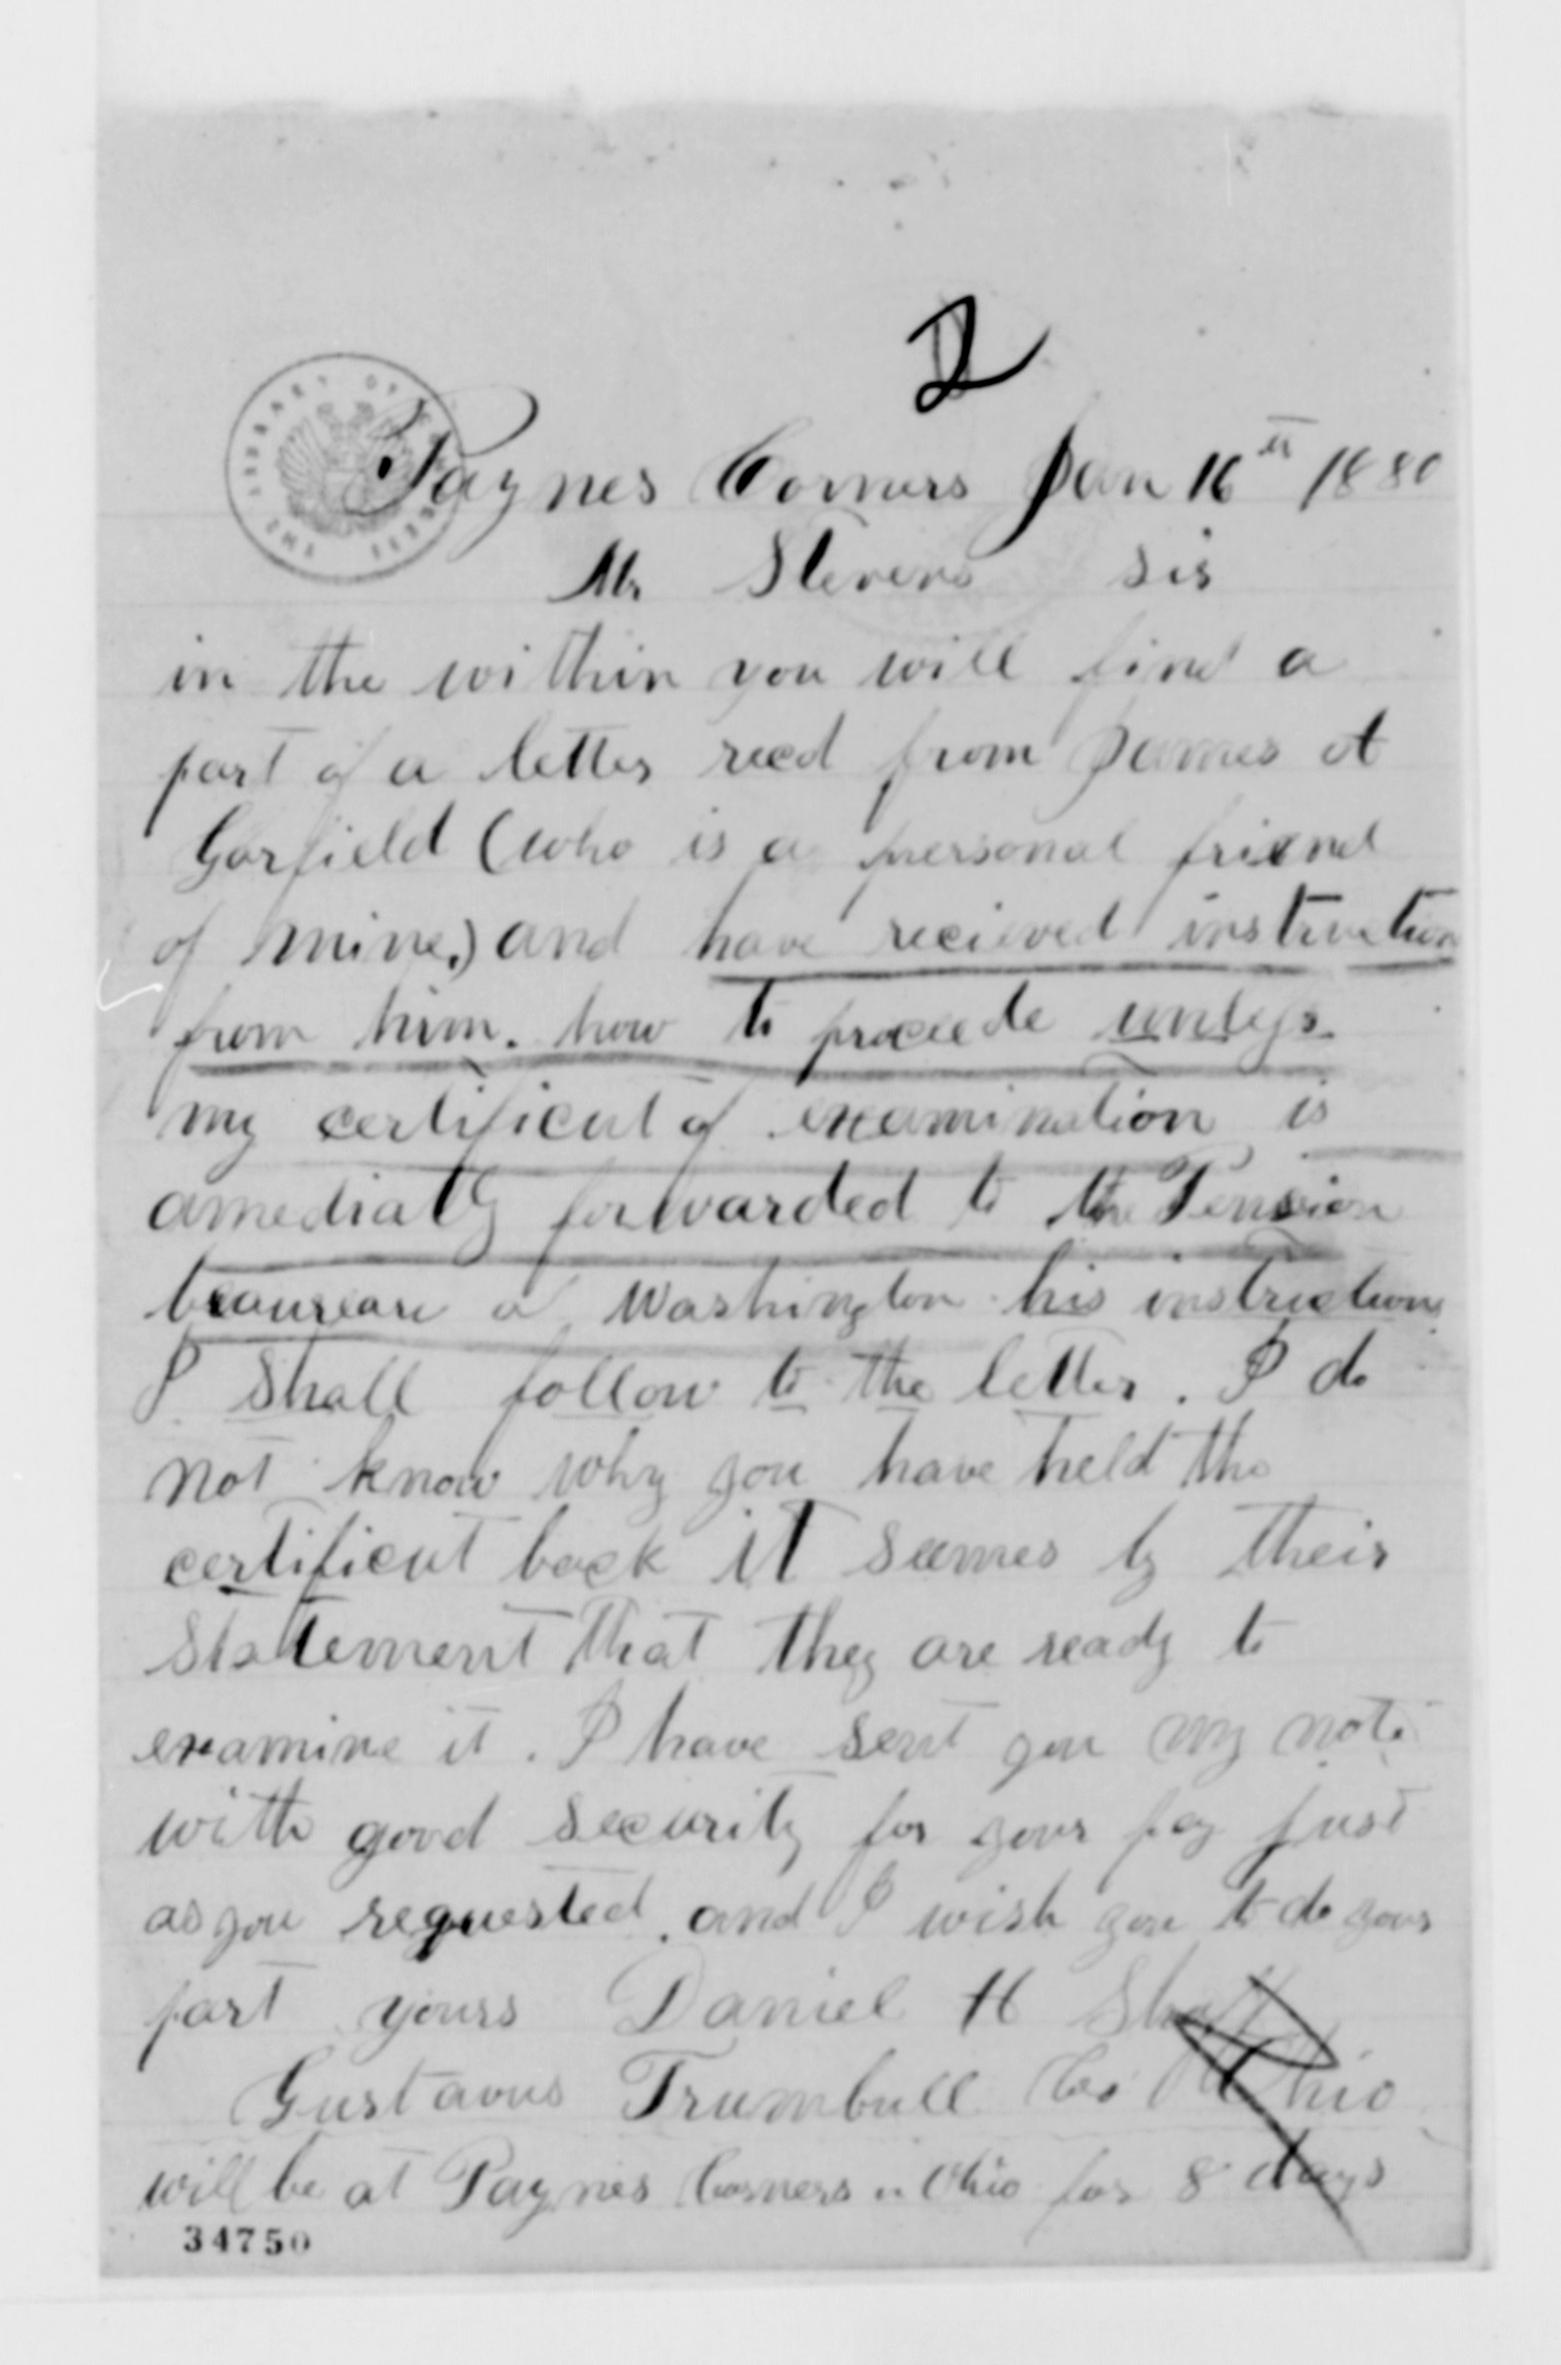 2
THE LIBRARY OF CONGRESS
Paynes Corners Jan 16th 1880
Mr Stevens sir
in the within you will find a
part of a letter recd from James A
Garfield (who is a personal friend
of mine.) and have recieved instruction
from him. how to proceede unless
my certificut of examination is
amediatly forwarded to the Pension
beaureau at Washington his instructions
I shall follow to the letter. I do
not know why you have held the
certificut back it seemes by their
statement that they are ready to
examine it. I have sent you my note
with good security for your pay just
as you requested. and I wish you to do your
part yours Daniel H
Gustavus Trumbull Co Ohio
will be at Paynes Corners .. Ohio for 8 days
34750